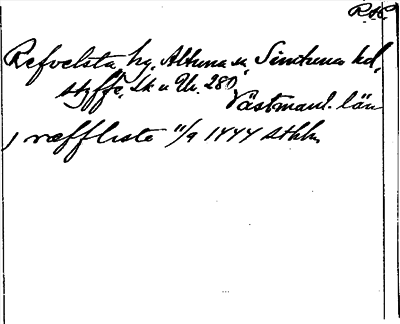 R.A.
Refvelsta, hg, Altuna sn, Simtuna hd,
Styffe, Sk. u. Un. 280,
Västmanl. län
, ræfflista 11/9 1444 Sthlm